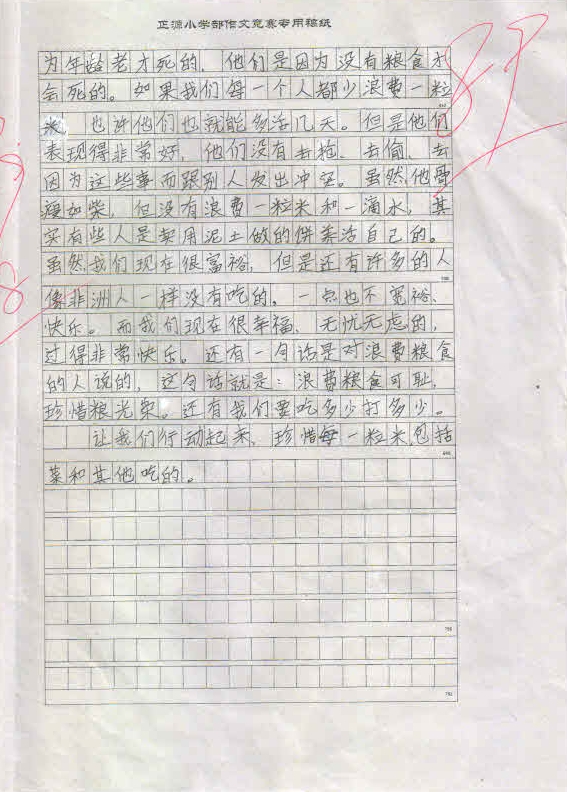 正源小学部作文竞赛专用稿纸
为年龄老才死的，他们是因为没有粮食才
会死的。如果我们每一个人都少浪费一粒
米，也许他们也就能多活几天。但是他们
表现得非常好，他们没有去抢、去偷、去
因为这些事而跟别人发出冲突。虽然他骨
瘦如柴，但没有浪费一粒米和一滴水，其
实有些人是卖用泥土做的饼养活自己的。
虽然我们现在很富裕，但是还有许多的人
像非洲人一样没有吃的，一点也不宽裕、
快乐。而我们现在很幸福、无忧无虑的，
过得非常快乐。还有一句话是对浪费粮食
的人说的，这句话就是：浪费粮食可耻，
珍惜粮光荣。还有我们要吃多少打多少。
让我们行动起来，珍惜每一粒米包括
菜和其他吃的。
89